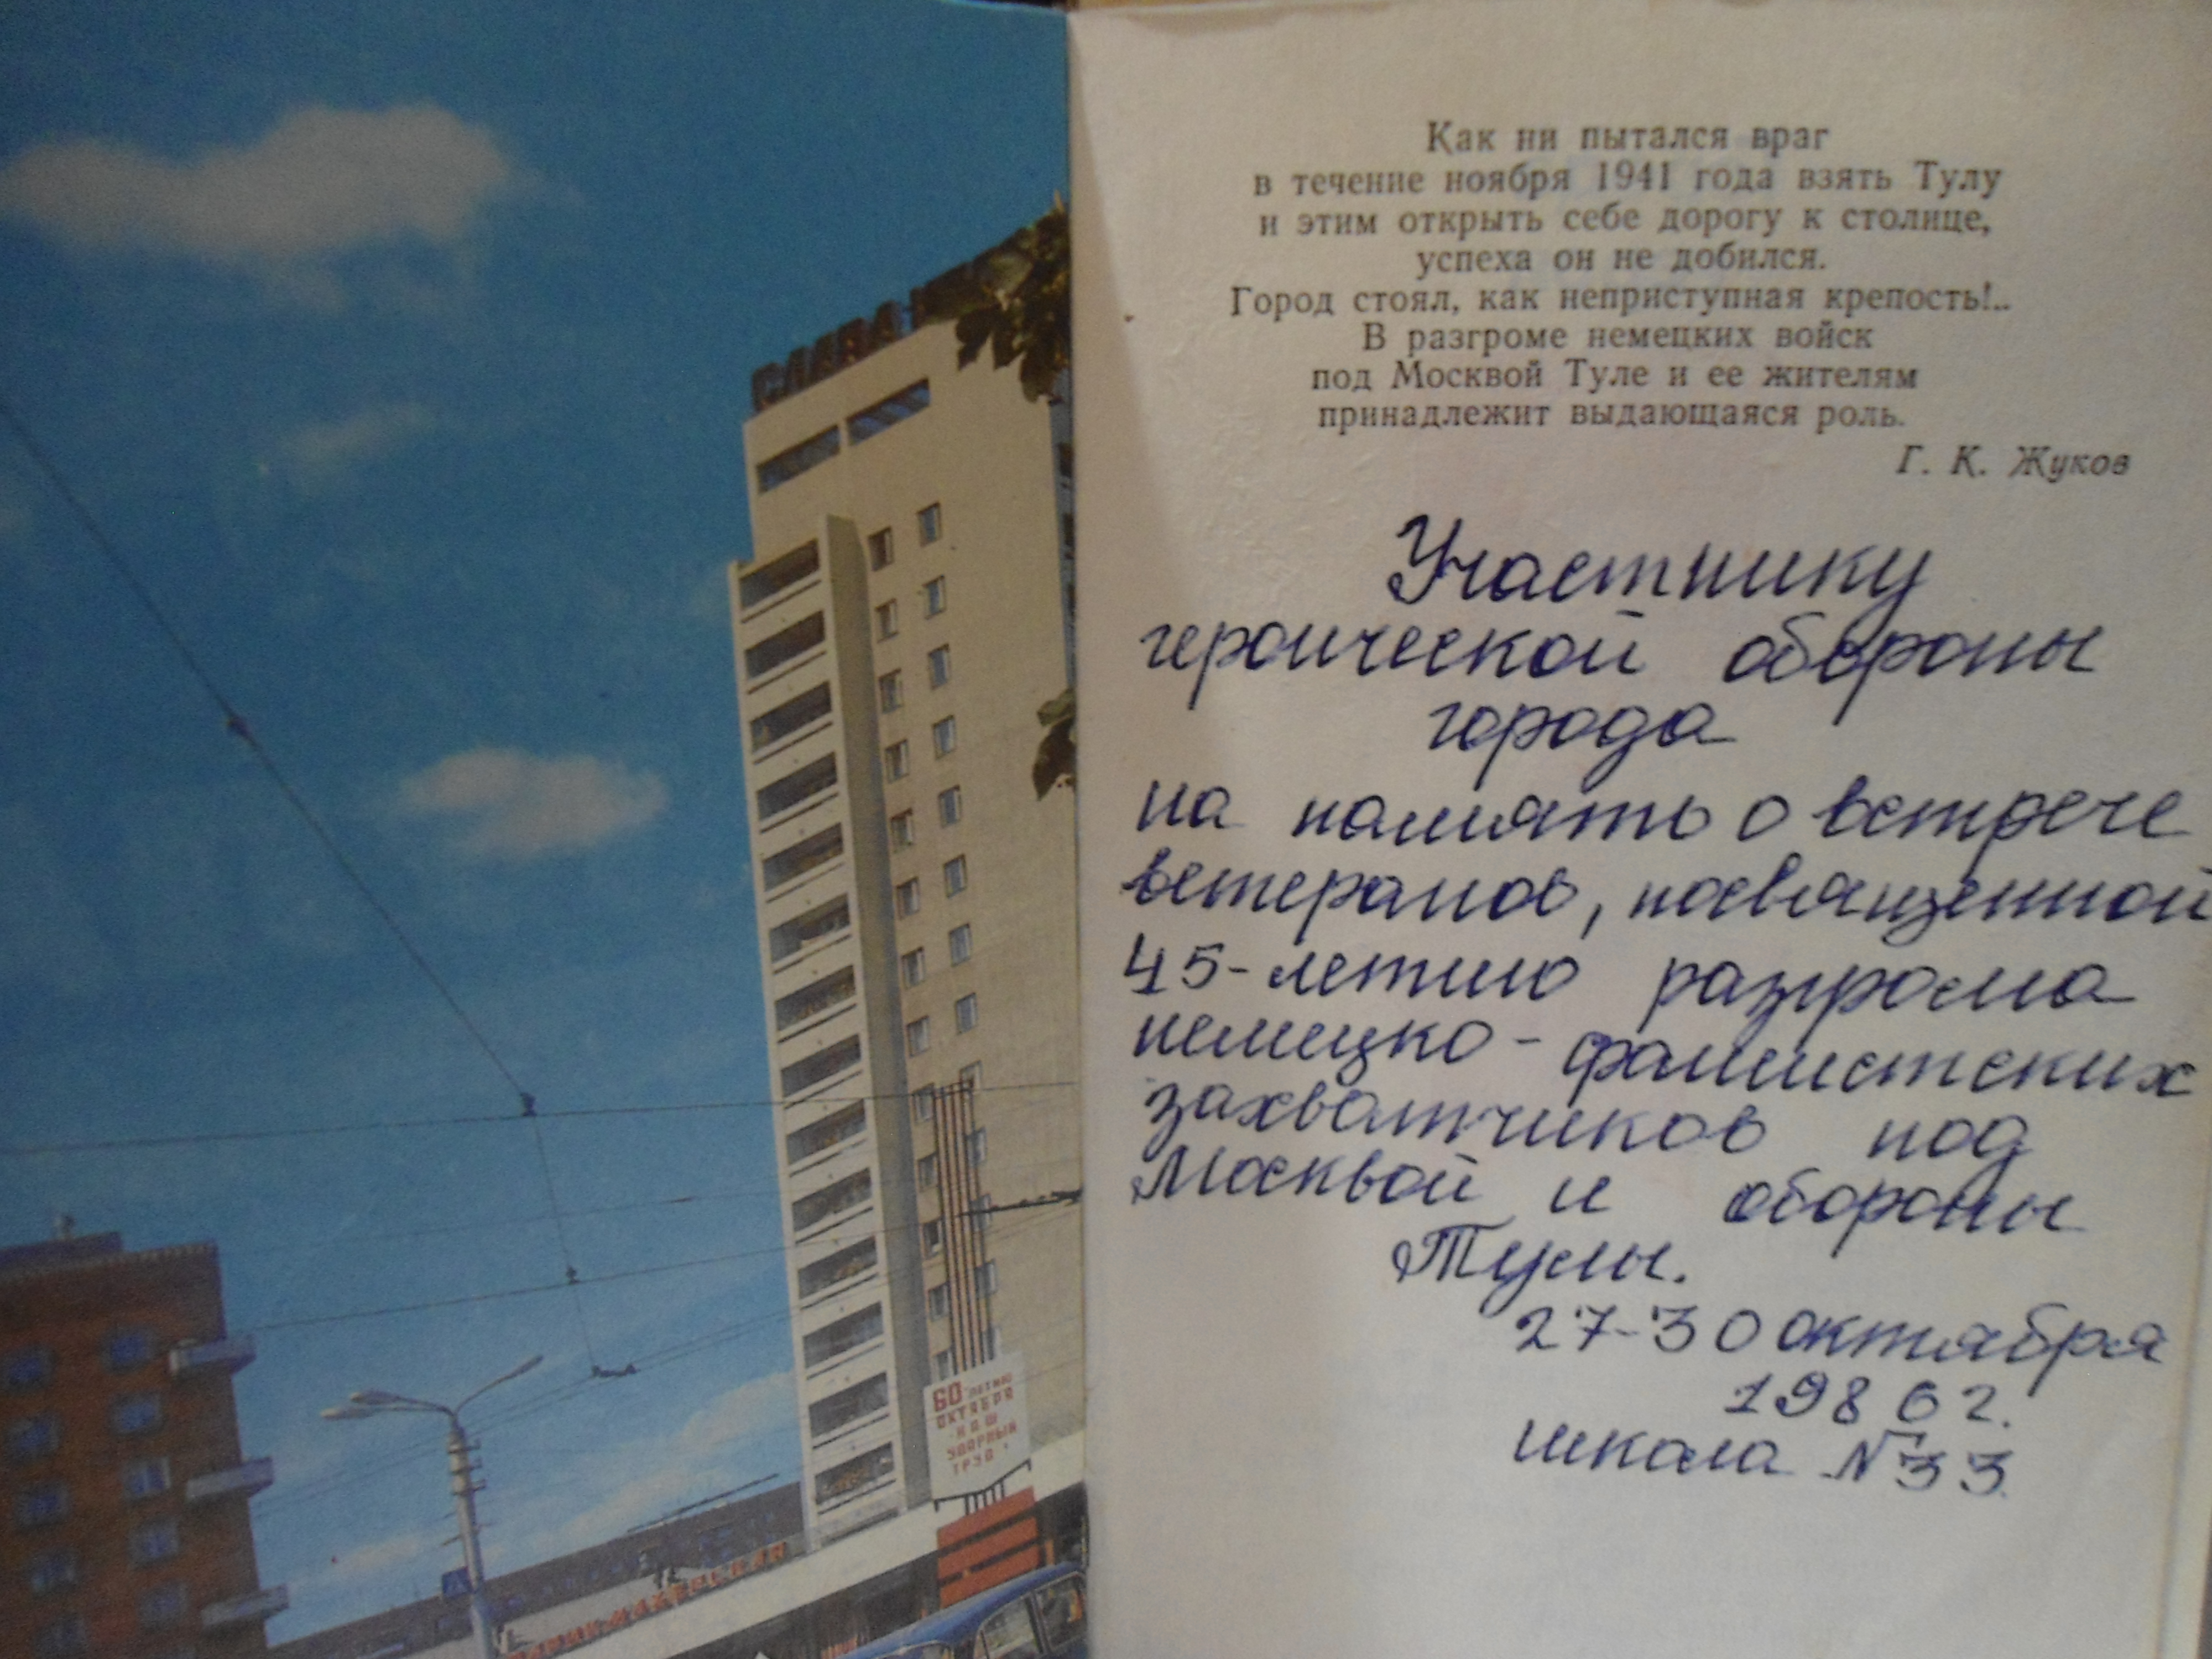 СЛАВА
60 ЛЕТИЮ
ОКТЯБРЯ
НАШ
УДАРНЫЙ
ТРУД
ПАРИКМАХЕРСКАЯ
Как ни пытался враг
в течение ноября 1941 года взять Тулу
и этим открыть себе дорогу к столице,
успеха он не добился.
Город стоял, как неприступная крепость!..
В разгроме немецких войск
под Москвой Туле и ее жителям
принадлежит выдающаяся роль.
Г. К. Жуков
Участнику
героической обороны
города
на память о встрече
ветеранов, посвященной
45-летию разгрома
немецко-фашистских
захватчиков под
Москвой и обороны
Тулы.
27-30 октября
1986 г.
школа №33